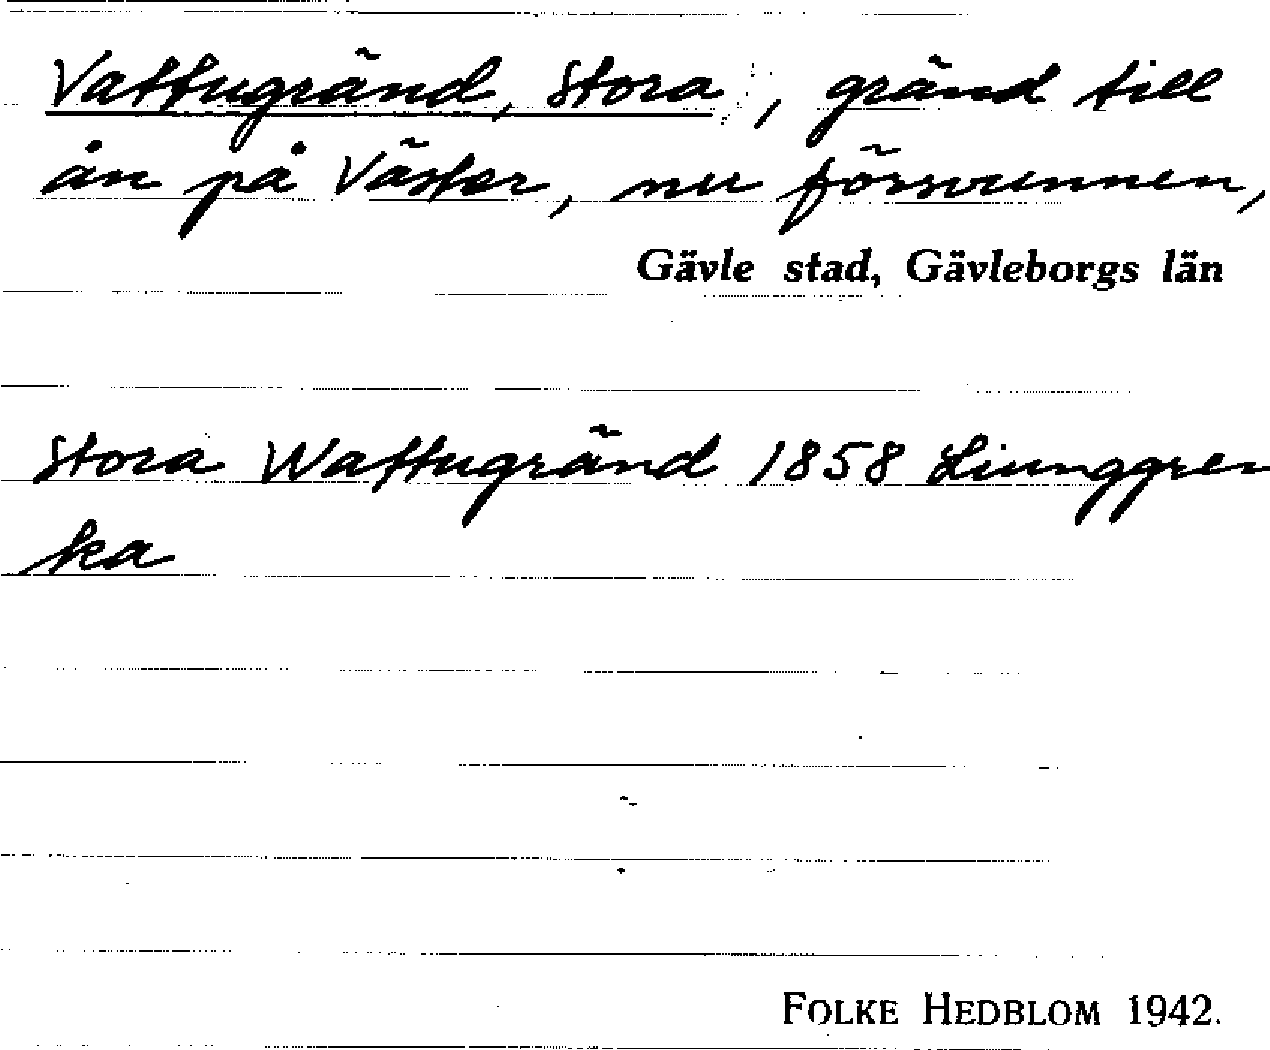 Vattugränd, Stora, gränd till
ån på Väster, nu försvunnen,
Gävle stad, Gävleborgs län
Stora Wattugränd 1858 Liunggren
ka
FOLKE HEDBLOM 1942.